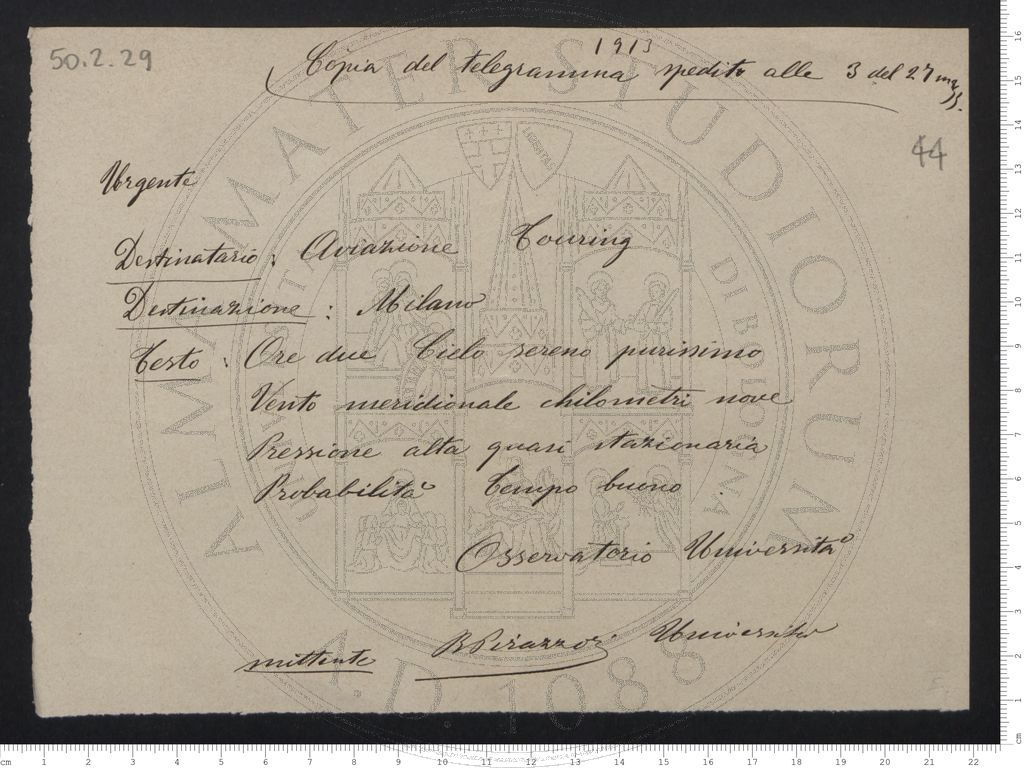 50.2.29
1913
Copia del telegramma spedito alle 3 del 27
44
Urgente
Destinatario : Aviazione Touring
Destinazione : Milano
Testo : Ore due Cielo sereno purissimo
Vento meridionale chilometri nove
Pressione alta quasi stazionaria
Probabilità tempo buono
Osservatorio Università
mittente B Pirazzoli Università
ALMA MATER STUDIORUM
A.D. 1088